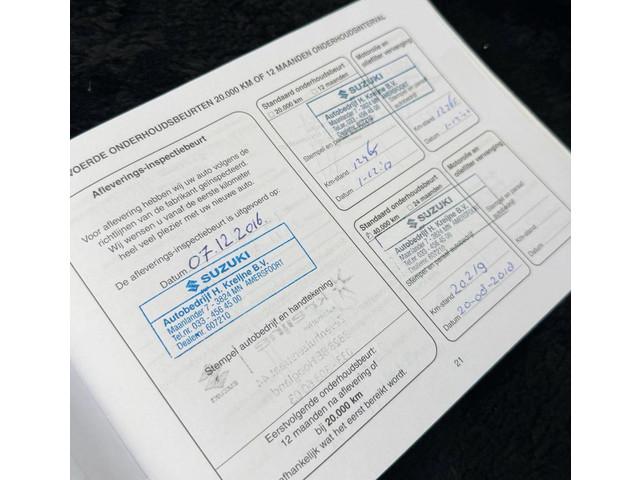 VOERDE ONDERHOUDSBEURTEN 20.000 KM OF 12 MAANDEN ONDERHOUDSINTERVAL
Afleverings-inspectiebeurt
Voor aflevering hebben wij uw auto volgens de
richtlijnen van de fabrikant geïnspecteerd.
Wij wensen u vanaf de eerste kilometer
heel veel plezier met uw nieuwe auto.
De afleverings-inspectiebeurt is uitgevoerd op:
Datum 07.12.2016.
SUZUKI
Autobedrijf H. Kreijne B.V.
Maanlander 7 - 3824 MN AMERSFOORT
Tel.nr. 033 - 456 45 00
Dealernr. 607210
Stempel autobedrijf en handtekening.
Eerstvolgende onderhoudsbeurt:
12 maanden na aflevering of
bij 20.000 km
afhankelijk wat het eerst bereikt wordt.
Standaard onderhoudsbeurt
20.000 km 12 maanden
SUZUKI
Autobedrijf H. Kreijne B.V.
Stempel en
Km-stand
Datum
Motorolie en
oliefilter vervanging
Stempel en paraaf
autobedrijf
Km-stand
Datum
Standaard onderhoudsbeurt
40.000 km 24 maanden
SUZUKI
Autobedrijf H. Kreijne B.V.
Stempel en paraaf autobedrijf
Km-stand 20219
Datum
Motorolie en
oliefilter vervanging
Stempel en paraaf
autobedrijf
Km-stand
Datum
21